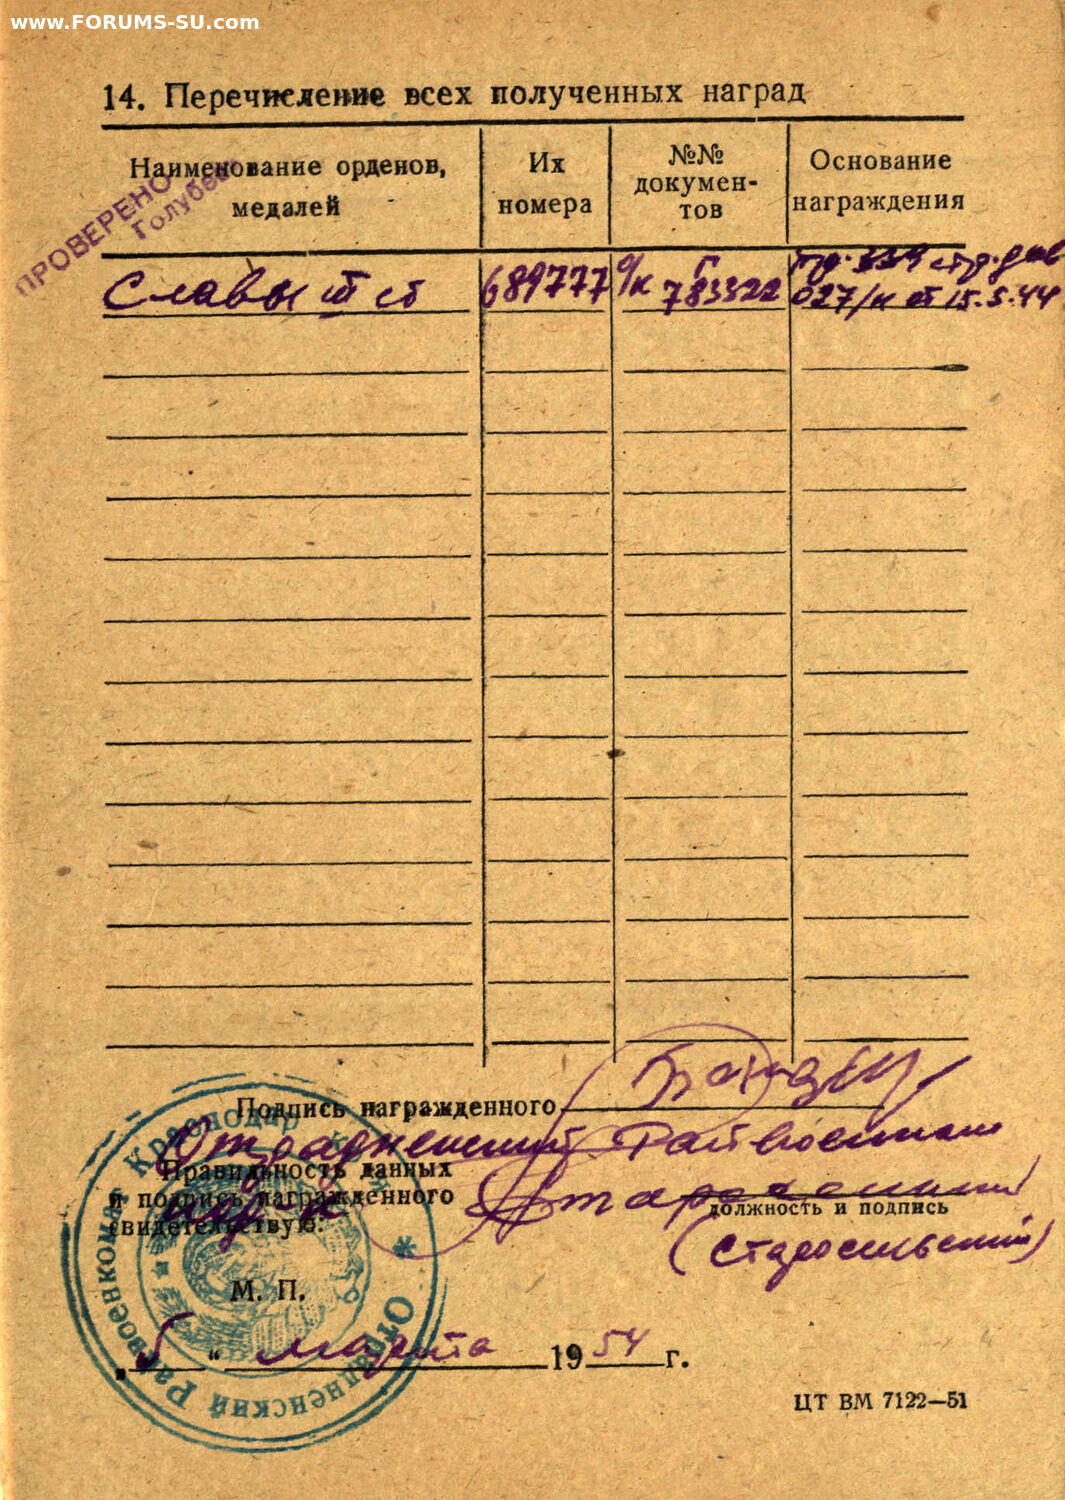 www.FORUMS-SU.com
14. Перечисление всех полученных наград
Наименование орденов, медалей
Их номера
№№ докумен-тов
Основание награждения
ПРОВЕРЕНО
Голубев
Славы III ст
689777
о/к Г 783322
пр. 339 стр. див
027/н от 15.5.44
Подпись награжденного
Отрадненский Райвоенком
Правильность данных
и подпись награжденного
свидетельствую:
должность и подпись
М. П.
„5“ марта 1954 г.
Отрадненский Райвоенкомат Краснодар
ЦТ ВМ 7122—51